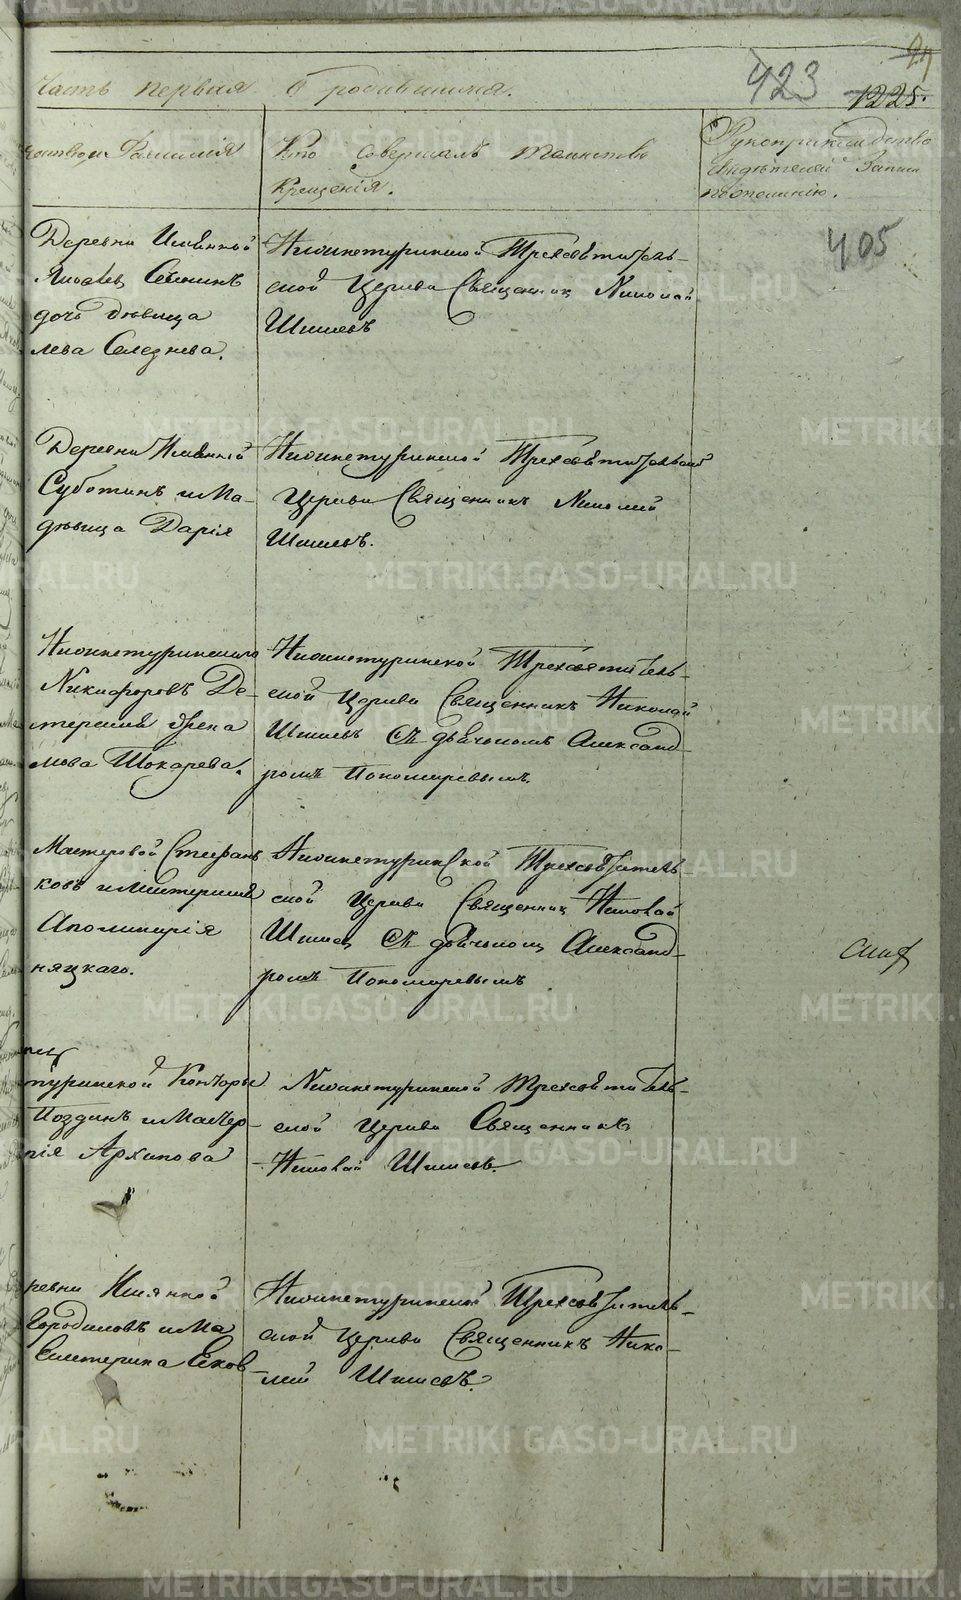 27
423
1225.
Часть первая О родившихся.
Отчество и Фамилія
Кто совершалъ таинство
Крещенія.
Рукоприкладство
свидѣтелей записи
по желанію.
405
Деревни Имянной
Яковлев
дочь дѣвица
лева Селезнева.
Нижнетуринской Трехсвятитель-
ской Церкви Священник Николай
Шишевъ
Деревни Имянной
Суботинъ и Ма-
дѣвица Дарія
Нижнетуринской Трехсвятительской
Церкви Священникъ Николай
Шишевъ.
Нижнетуринскаго
Никифоровъ Де-
мова Токарева.
Нижнетуринской Трехсвятитель-
ской Церкви Священникъ Николай
Шишевъ Съ дьячькомъ Александ-
ромъ Пономаревымъ.
Мастеровой Стефанъ
ковъ и
Аполинарія
няцкаго.
Нижнетуринской Трехсвятитель-
ской Церкви Священник Николай
Шишев Съ дьячьком Александ-
ромъ Пономаревымъ
туринской Конторы
Поздинъ и Мастер-
рія Архипова
Нижнетуринской Трехсвятитель-
ской Церкви Священникъ
Николай Шишевъ.
ревни Имянной
Городиловъ и Ма
Екатерина Яков-
Нижнетуринской Трехсвятитель-
ской Церкви Священникъ Нико-
лай Шишевъ.
METRIKI.GASO-URAL.RU